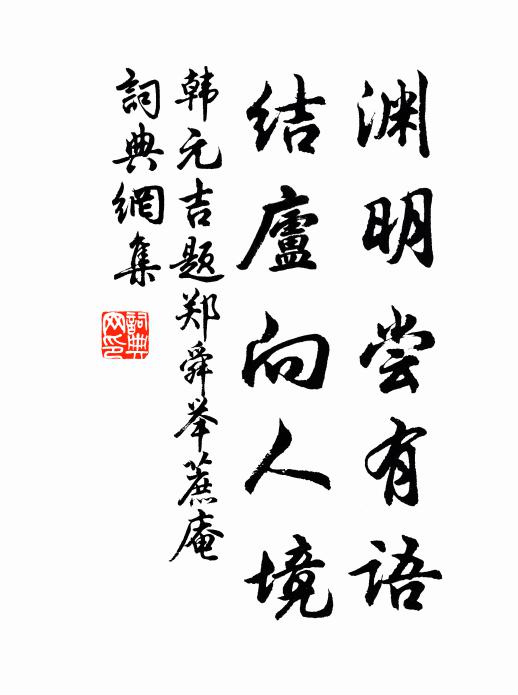 渊明尝有语
结廬向人境
韩元吉题郑舜举蔗庵
詞典網集
詞典网印